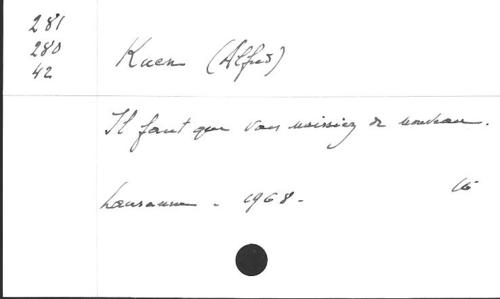 281
280
42
Kuen (Alfred)
Il faut que vous naissiez de nouveau.
Lausanne - 1968 -
16